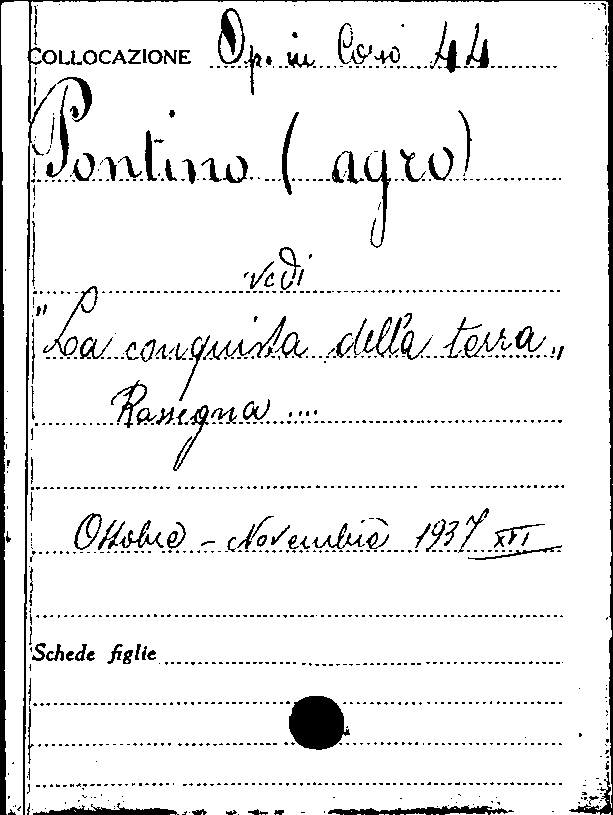 COLLOCAZIONE Op. in Corso 44
Pontino (agro)
vedi
"La conquista della terra"
Rassegna ....
Ottobre - Novembre 1937 XVI
Schede figlie